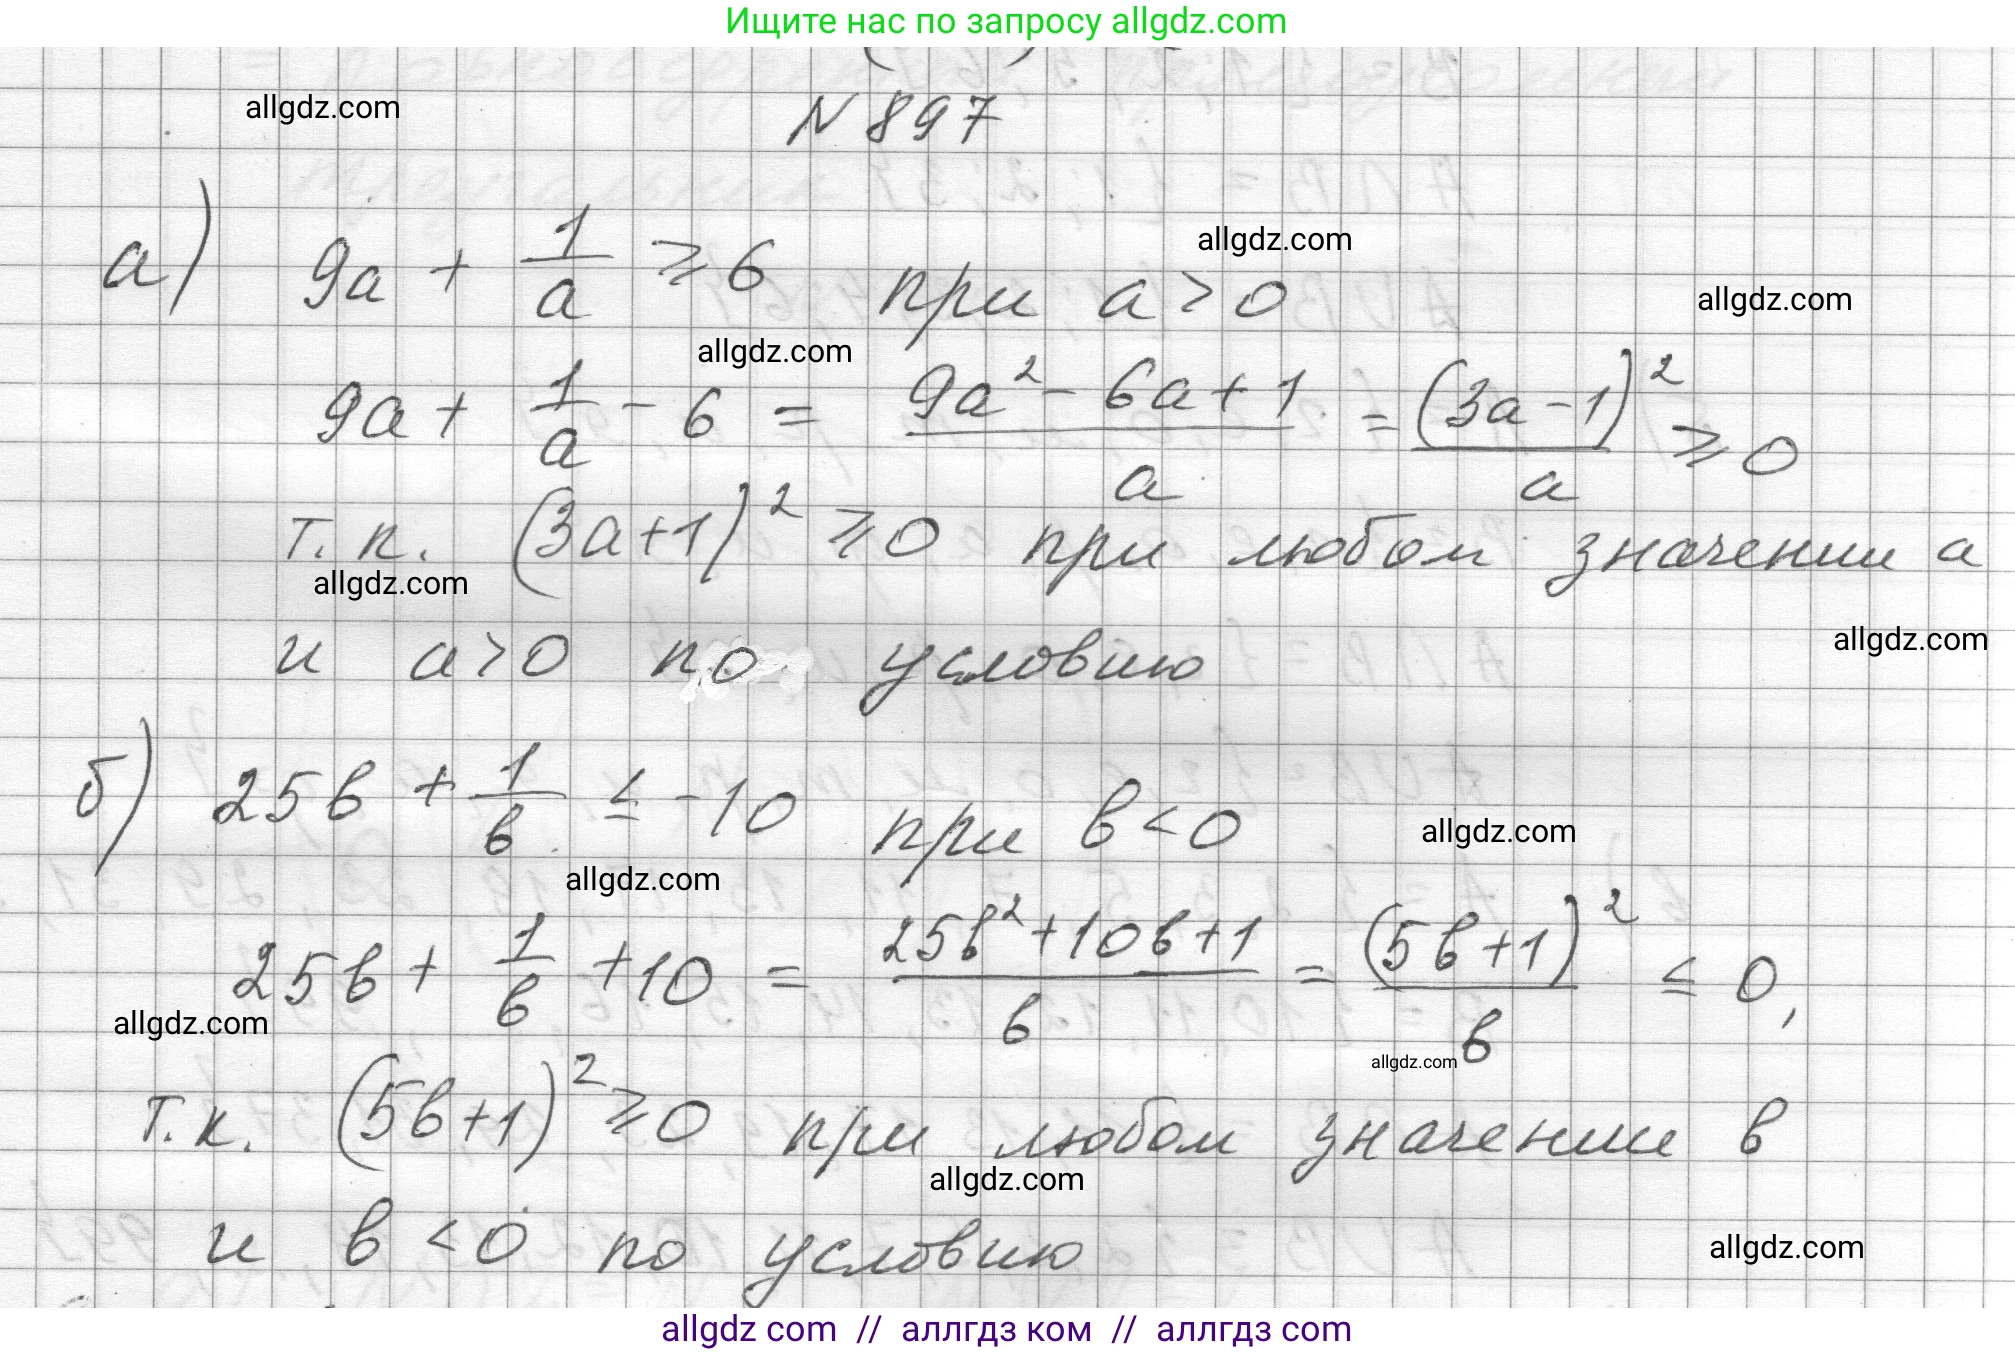 Ищите нас по запросу allgdz.com
allgdz.com
N 897
а) 9a + 1/a ⩾ 6 при a > 0
allgdz.com
allgdz.com
allgdz.com
9a + 1/a - 6 = (9a² - 6a + 1)/a = (3a - 1)²/a ⩾ 0
т.к. (3a+1)² ⩾ 0 при любом значении a
allgdz.com
allgdz.com
и a > 0 по условию
б) 25b + 1/b ≤ -10 при b < 0
allgdz.com
allgdz.com
25b + 1/b + 10 = (25b² + 10b + 1)/b = (5b + 1)²/b ≤ 0,
allgdz.com
allgdz.com
т.к. (5b+1)² ⩾ 0 при любом значении b
allgdz.com
и b < 0 по условию
allgdz.com
allgdz com // аллгдз ком // аллгдз com